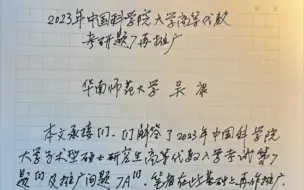 2023年中国科学院大学高等代数
考研题7再推广
华南师范大学 吴
本文承接[1]. [1]解答了2023年中国科学院
大学学术型硕士研究生高等代数入学考试第7
题[2]及推广问题7A[1]. 笔者在此基础上再作推广.